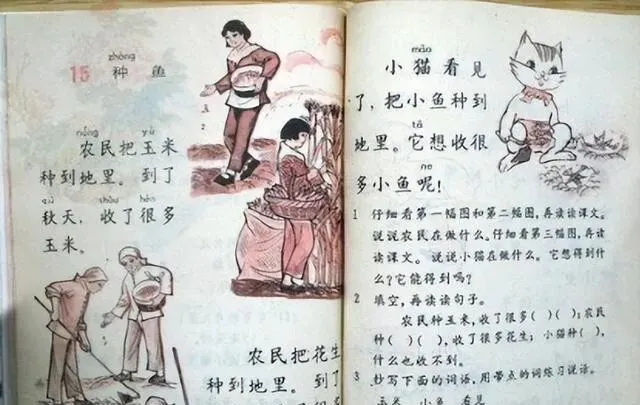 15 种鱼
zhòng
农民把玉米
nóng yù
种到地里。到了
秋天，收了很多
qiū shōu hěn
玉米。
农民把花生
种到地里。到了
小猫看见
māo
了，把小鱼种到
地里。它想收很
tā
多小鱼呢！
ne
1 仔细看第一幅图和第二幅图，再读读课文。
说说农民在做什么。仔细看第三幅图，再读
读课文。说说小猫在做什么。它想得到什
么？它能得到吗？
2 填空，再读读句子。
农民种玉米，收了很多( )( )；农民
种( )( )，收了很多花生；小猫种( )，
什么也收不到。
3 抄写下面的词语，用带点的词练习说话。
玉米 小鱼 看见